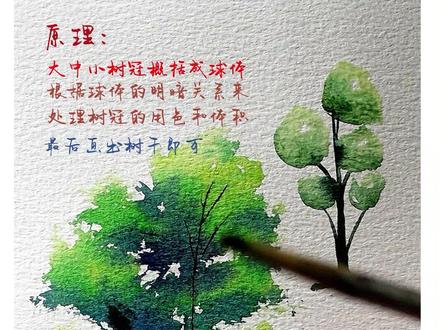 原理：
大中小树冠概括成球体
根据球体的明暗关系来
处理树冠的用色和体积
最后画出树干即可